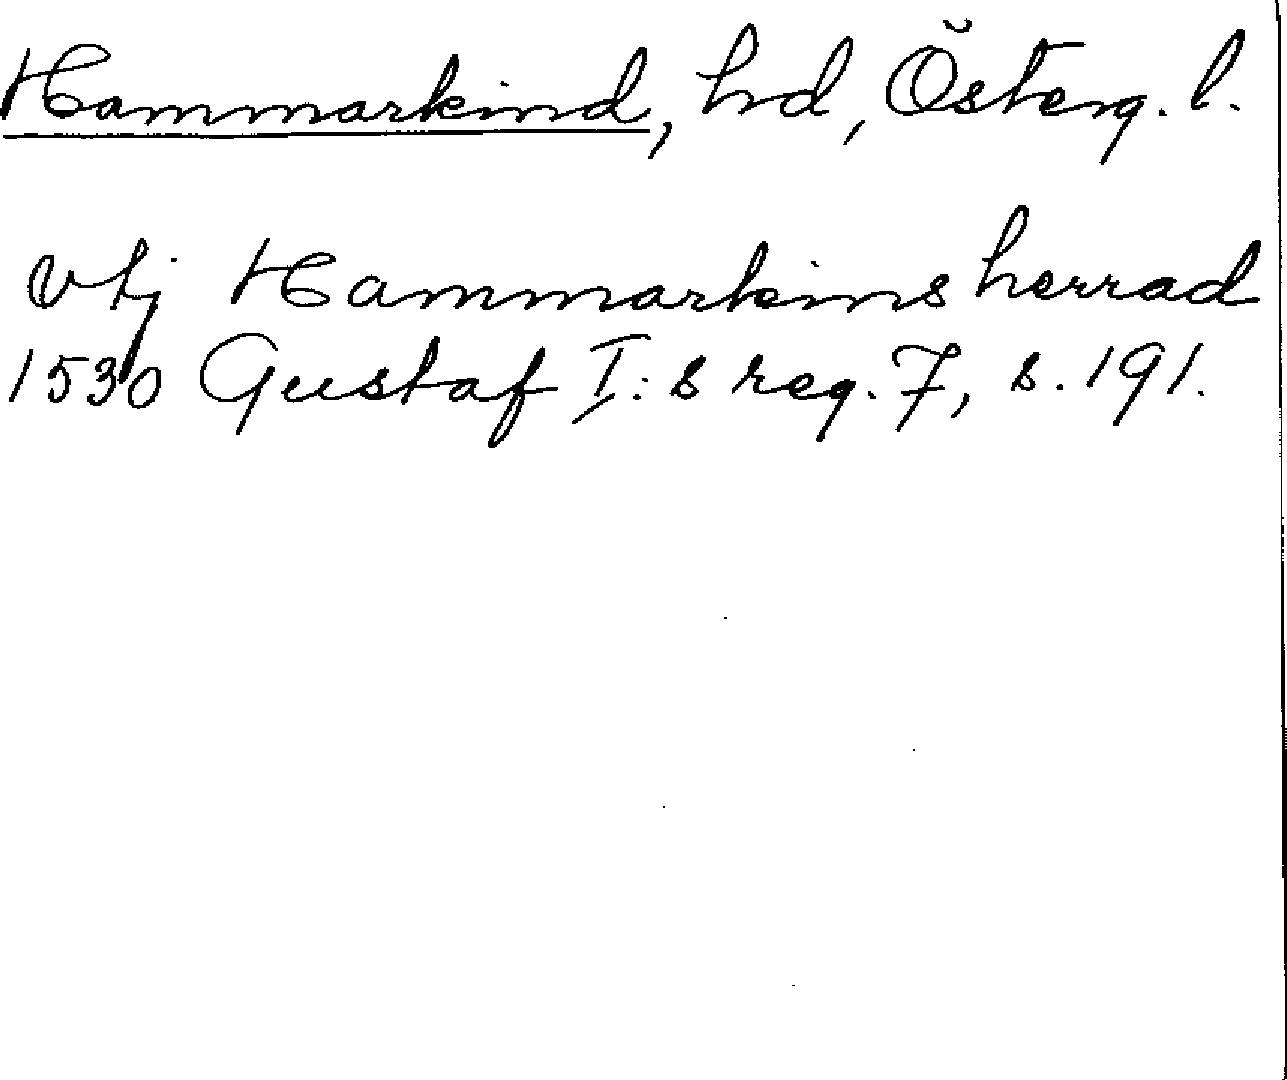 Hammarkind, hd, Österg. l.
vtj Hammarkins herrad
1530 Gustaf I:s reg. 7, s. 191.